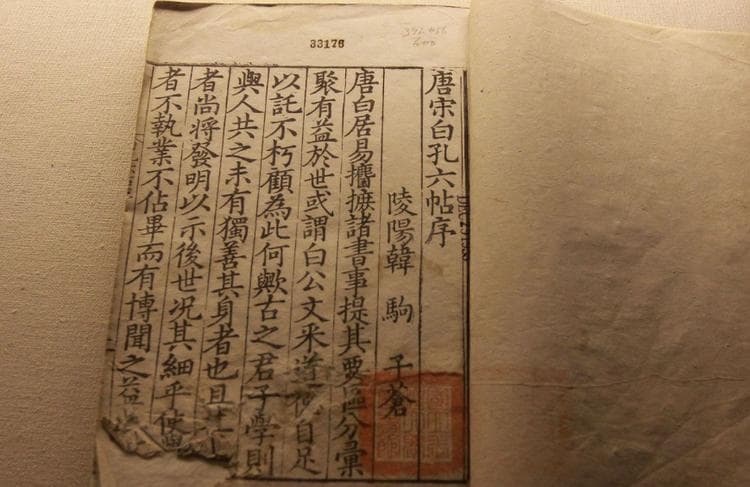 33176
唐宋白孔六帖序
陵陽韓駒子蒼
唐白居易攟摭諸書事提其要區分彙
聚有益於世或謂白公文釆道自足
以託不朽顧為此何歟古之君子學則
與人共之未有獨善其身者也且
者尚將發明以示後世况其細乎使
者不執業不佔畢而有博聞之益